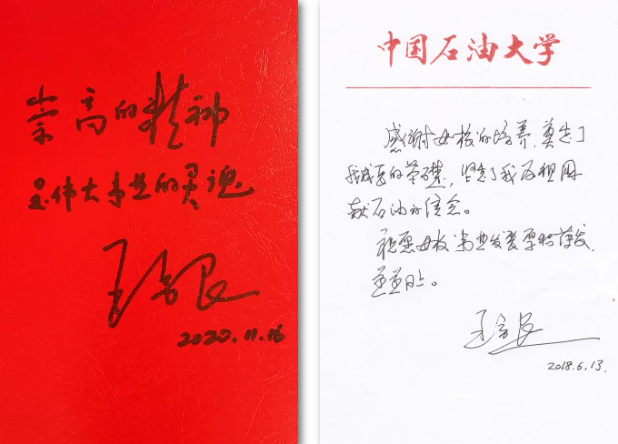 崇高的精神
是伟大事业的灵魂
2020.11.16
中国石油大学
感谢母校的培养,奠定了
我成长的基础,坚定了我为祖国
献石油的信念。
祝愿母校事业发展
蒸蒸日上。
2018.6.13.